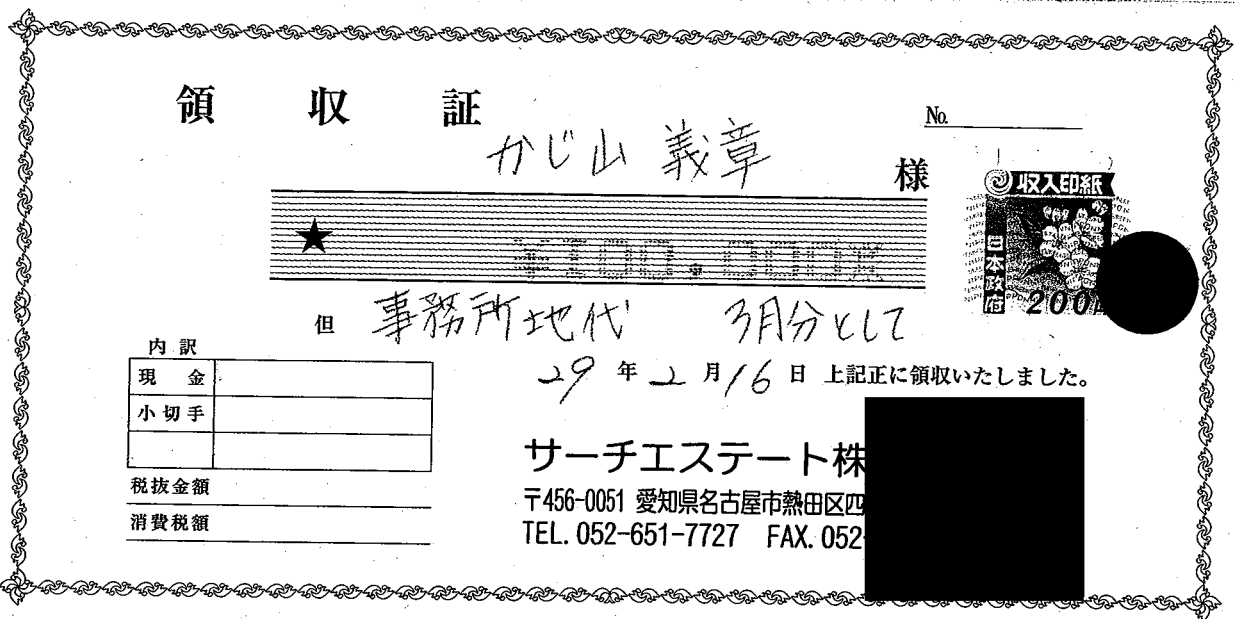 領収証
No.
かじ山 義章 様
収入印紙
日本政府
200円
★ ¥100,000※
但 事務所地代 3月分として
29年2月16日 上記正に領収いたしました。
内訳
現金
小切手
税抜金額
消費税額
サーチエステート株
〒456-0051 愛知県名古屋市熱田区四
TEL. 052-651-7727 FAX. 052-